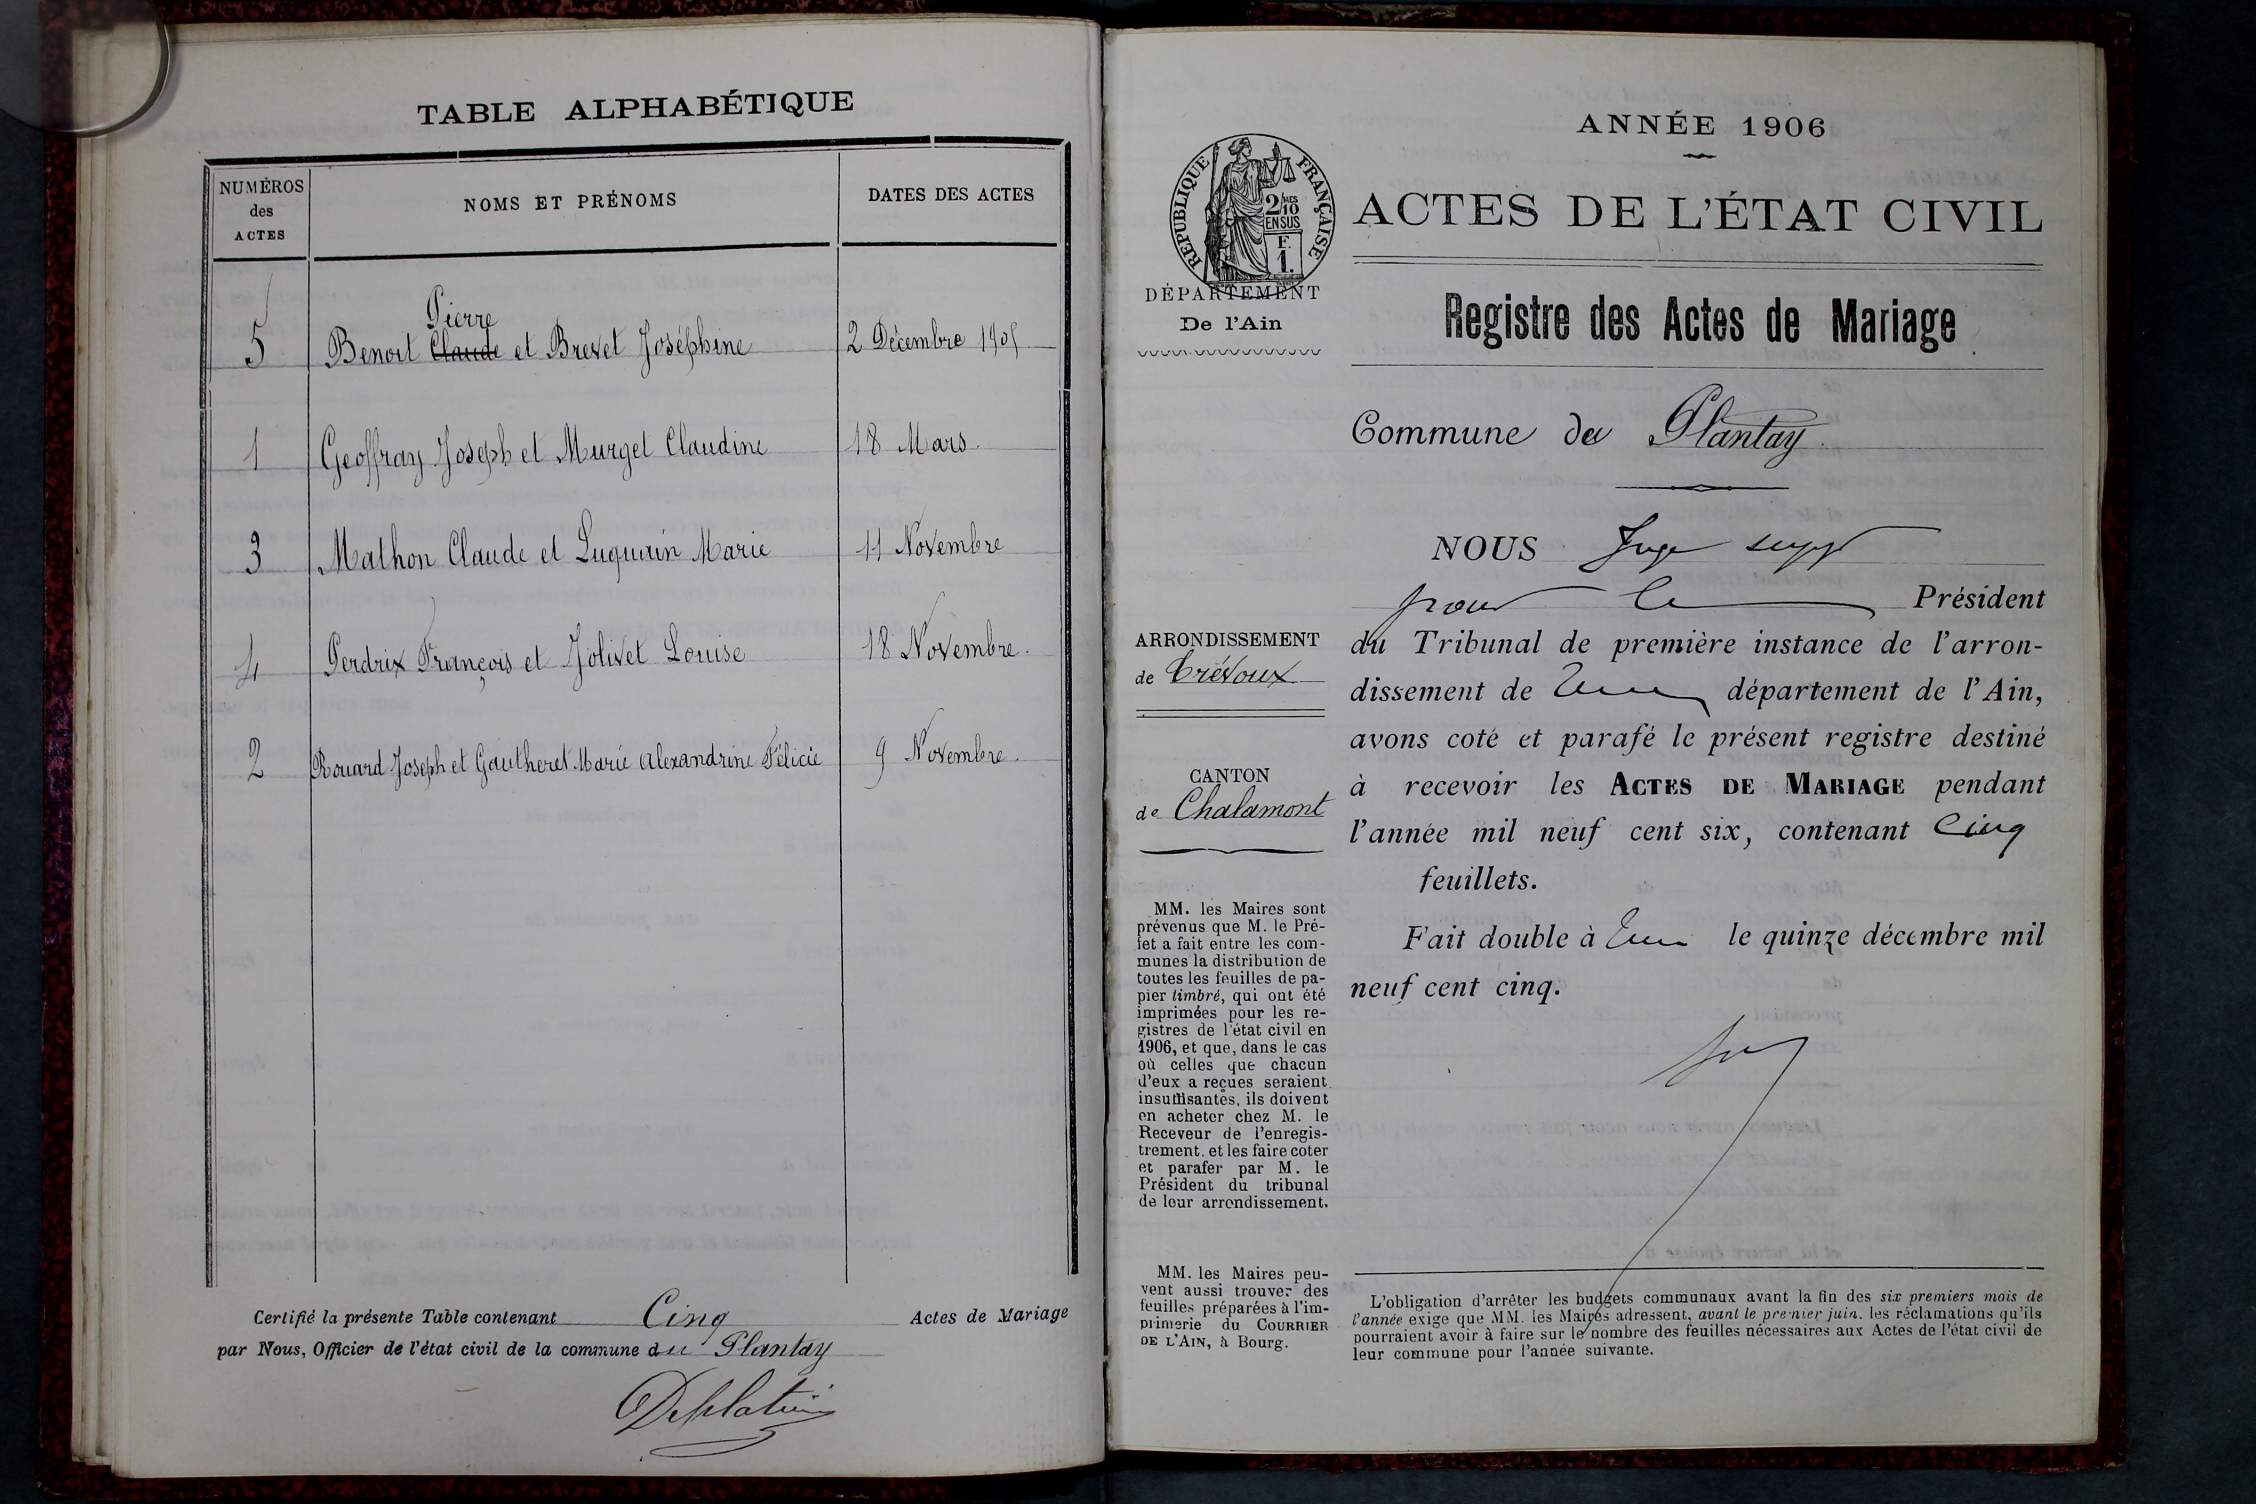 TABLE ALPHABÉTIQUE
NUMÉROS des ACTES
NOMS ET PRÉNOMS
DATES DES ACTES
Pierre
5 Benoit Claude et Brevet Joséphine 2 Décembre 1905
1 Geoffray Joseph et Murget Claudine 18 Mars.
3 Mathon Claude et Luguain Marie 11 Novembre
4 Perdrix François et Jolivet Louise 18 Novembre.
2 Rouard Joseph et Gautheret Marie Alexandrine Félicie 9 Novembre.
Certifié la présente Table contenant Cinq Actes de Mariage
par Nous, Officier de l'état civil de la commune du Plantay
ANNÉE 1906
RÉPUBLIQUE FRANÇAISE
2/10 MES
EN SUS
F.
1.
DÉPARTEMENT
De l'Ain
ACTES DE L'ÉTAT CIVIL
Registre des Actes de Mariage
Commune du Plantay
ARRONDISSEMENT
de Trévoux
CANTON
de Chalamont
MM. les Maires sont
prévenus que M. le Pré-
fet a fait entre les com-
munes la distribution de
toutes les feuilles de pa-
pier timbré, qui ont été
imprimées pour les re-
gistres de l'état civil en
1906, et que, dans le cas
où celles que chacun
d'eux a reçues seraient
insuffisantes, ils doivent
en acheter chez M. le
Receveur de l'enregis-
trement, et les faire coter
et parafer par M. le
Président du tribunal
de leur arrondissement.
MM. les Maires peu-
vent aussi trouver des
feuilles préparées à l'im-
primerie du COURRIER
DE L'AIN, à Bourg.
NOUS Juge suppt
pour le Président
du Tribunal de première instance de l'arron-
dissement de département de l'Ain,
avons coté et parafé le présent registre destiné
à recevoir les ACTES DE MARIAGE pendant
l'année mil neuf cent six, contenant Cinq
feuillets.
Fait double à le quinze décembre mil
neuf cent cinq.
L'obligation d'arrêter les budgets communaux avant la fin des six premiers mois de
l'année exige que MM. les Maires adressent, avant le premier juin, les réclamations qu'ils
pourraient avoir à faire sur le nombre des feuilles nécessaires aux Actes de l'état civil de
leur commune pour l'année suivante.